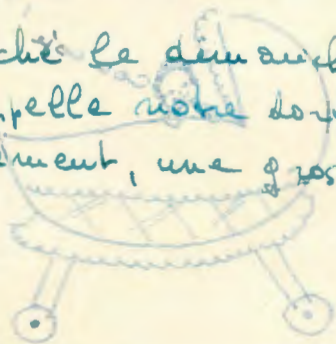 ché le dimanche
pelle notre
ment, une